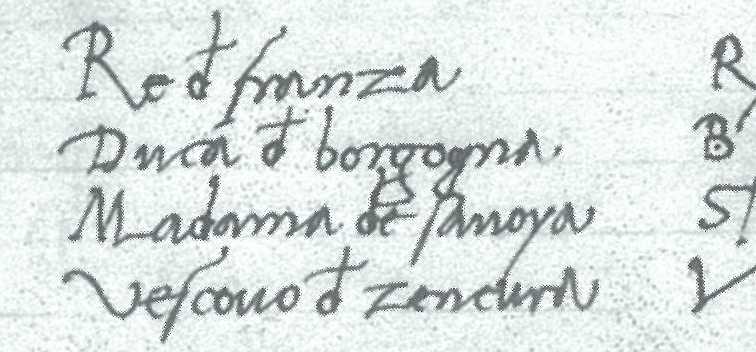 Re đ franza R
Duca đ borgogna. B
Madama de sauoya S
Vescouo đ zeneura V